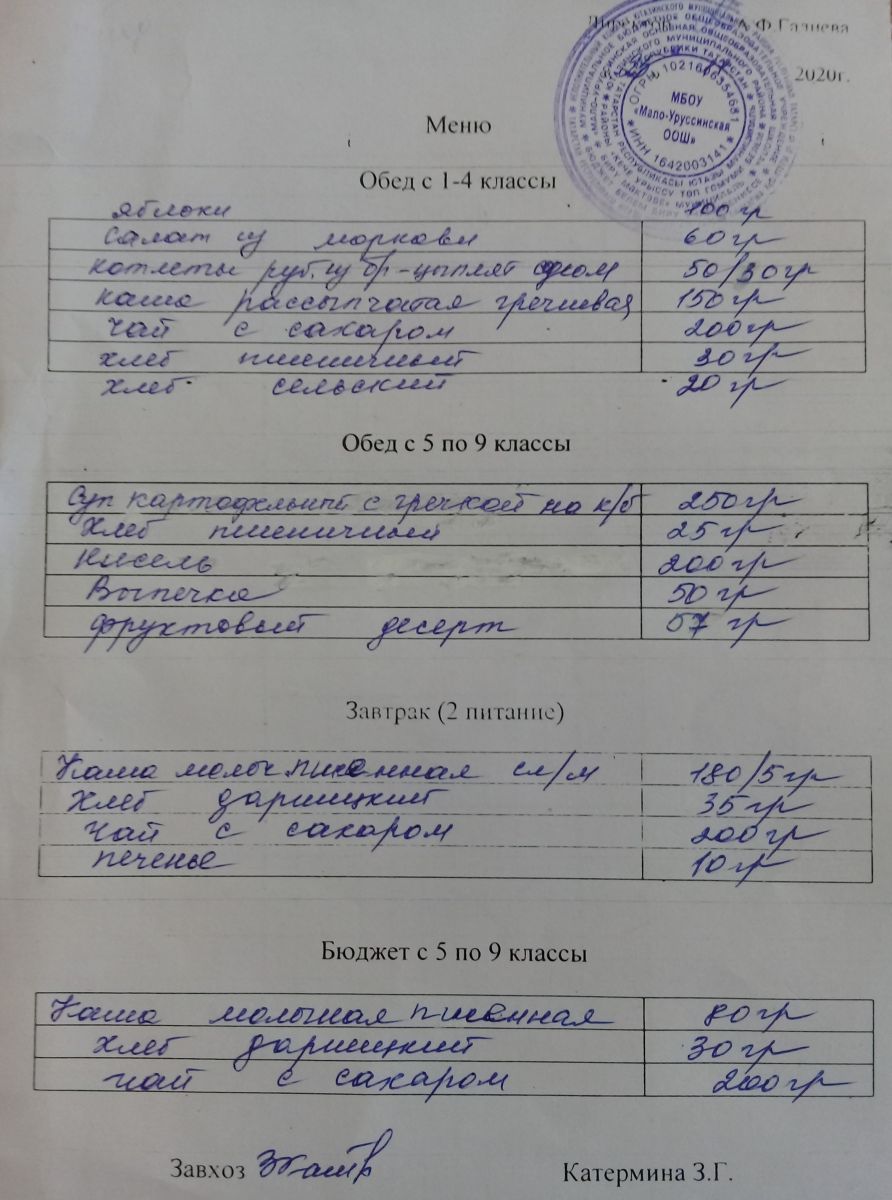 А.Ф.Галиева
2020г.
ОГРН 1021606354681
МБОУ
«Мало-Уруссинская
ООШ»
ИНН 1642003141
Меню
Обед с 1-4 классы
яблоки 100 гр
Салат из моркови 60 гр
котлеты руб. из бр-цыплят 50/30гр
каша рассыпчатая гречневая 150 гр
чай с сахаром 200гр
хлеб пшеничный 30 гр
хлеб сельский 20 гр
Обед с 5 по 9 классы
Суп картофельный с гречкой на к/б 250гр
Хлеб пшеничный 25 гр
Кисель 200гр
Выпечка 50 гр
фруктовый десерт 57 гр
Завтрак (2 питание)
Каша молоч. пшенная сл/м 180/5гр
Хлеб дарницкий 35 гр
чай с сахаром 200гр
печенье 10 гр
Бюджет с 5 по 9 классы
Каша молочная пшенная 80 гр
хлеб дарницкий 30 гр
чай с сахаром 200гр
Завхоз Катермина З.Г.